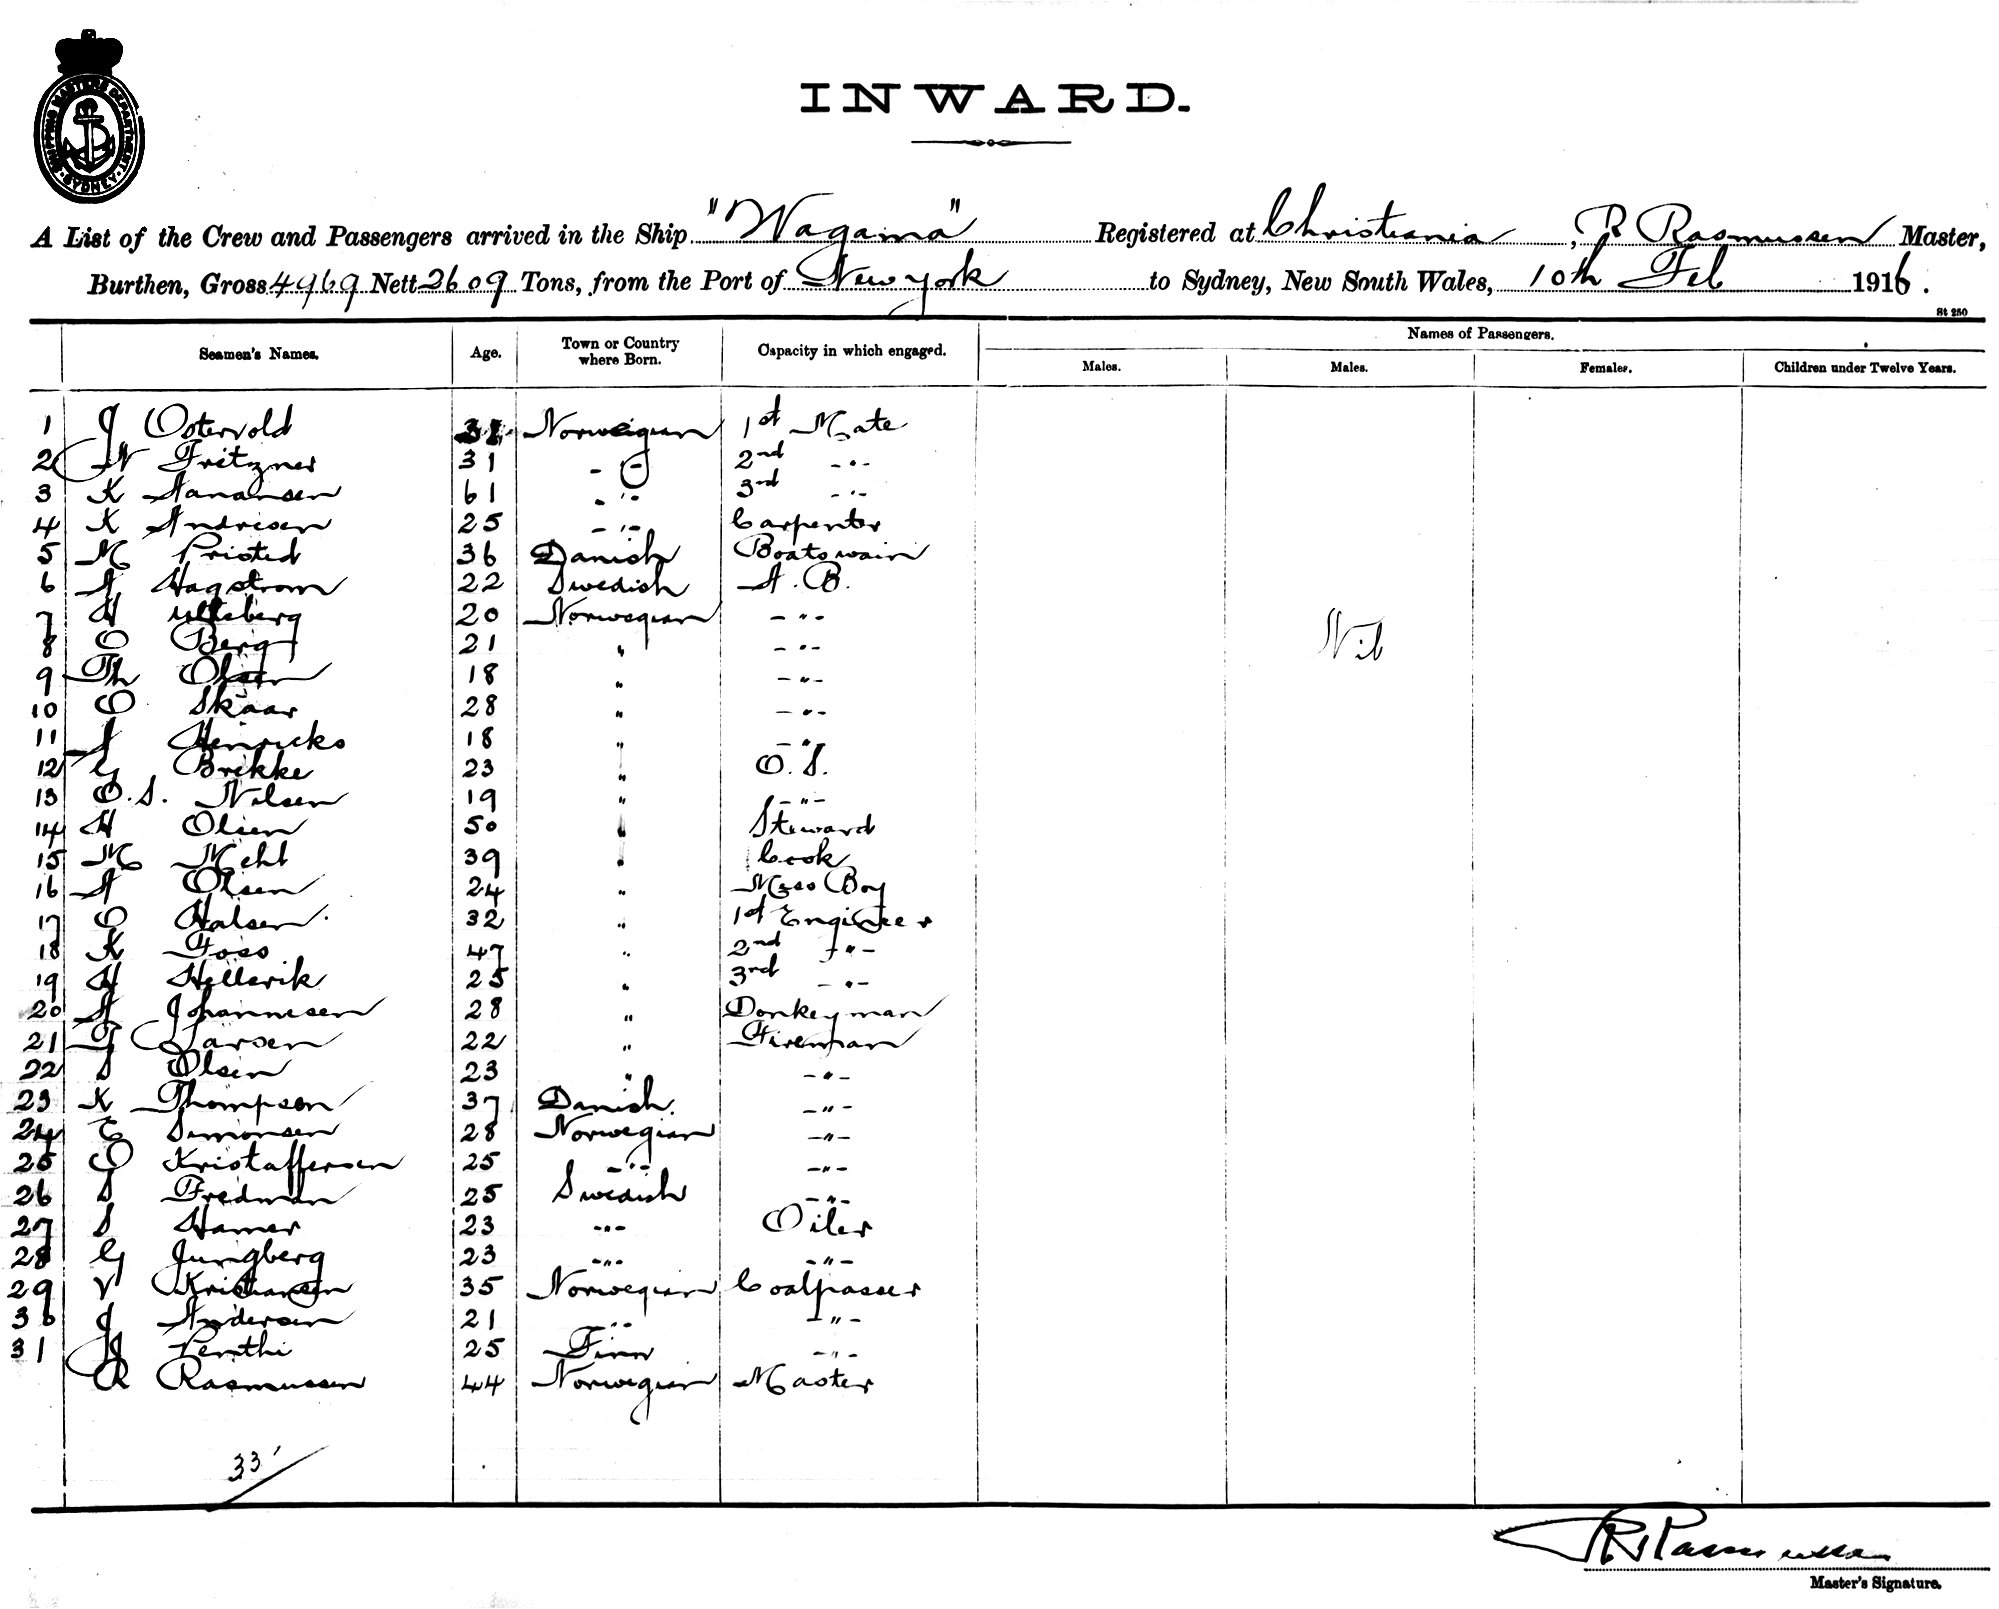 SHIPPING MASTERS DEPARTMENT. SYDNEY
INWARD.
A List of the Crew and Passengers arrived in the Ship "Wagama" Registered at Christiania, R Rasmussen Master,
Burthen, Gross 4969 Nett 2609 Tons, from the Port of New york to Sydney, New South Wales, 10th Feb 1916.
St 250
Seamen's Names. Age. Town or Country where Born. Capacity in which engaged. Names of Passengers.
Males. Males. Females. Children under Twelve Years.
1 J Ostervold Norwegian 1st Mate
2 N Fritzner 31 - " - 2nd - " -
3 K 61 - " - 3rd - " -
4 K Andresen 25 - " - Carpenter
5 M Pristed 36 Danish Boatswain
6 A Hagstrom 22 Swedish A.B.
7 H 20 Norwegian - " -
8 O Berg 21 " - " -
Nil
9 Th Olsen 18 " - " -
10 O Skaar 28 " - " -
11 A Henricks 18 " - " -
12 G Brekke 23 " O.S.
13 O.S. Nilsen 19 " - " -
14 H Olsen 50 " Steward
15 M Mehl 39 " Cook
16 A Olsen 24 " Mess Boy
17 O Halsen 32 " 1st Engineer
18 K Foss 47 " 2nd - " -
19 H Hellerik 25 " 3rd - " -
20 A Johannesen 28 " Donkeyman
21 T Larsen 22 " Fireman
22 S Olsen 23 " - " -
23 K Thompson 37 Danish. - " -
24 E Simonsen 28 Norwegian - " -
25 O Kristaffersen 25 - " - - " -
26 S Fredman 25 Swedish - " -
27 S Hamer 23 - " - Oiler
28 G Jungberg 23 - " - - " -
29 V Kristiansen 35 Norwegian Coalpasser
30 J Andersen 21 " - " -
31 Penthi 25 Finn - " -
R Rasmussen 44 Norwegian Master
33
R Rasmussen
Master's Signature.